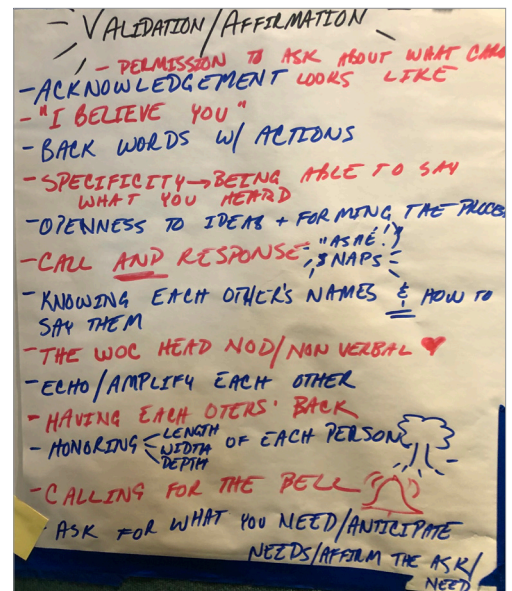 - VALIDATION/AFFIRMATION
- PERMISSION TO ASK ABOUT WHAT
LOOKS LIKE
- ACKNOWLEDGEMENT
- "I BELIEVE YOU"
- BACK WORDS W/ ACTIONS
- SPECIFICITY→BEING ABLE TO SAY
WHAT YOU HEARD
- OPENNESS TO IDEAS + FORMING THE
- CALL AND RESPONSE: "ASHE!"
SNAPS
- KNOWING EACH OTHER'S NAMES & HOW TO
SAY THEM
- THE WOC HEAD NOD/NON VERBAL ♥
- ECHO/AMPLIFY EACH OTHER
- HAVING EACH OTERS' BACK
- HONORING < LENGTH
WIDTH
DEPTH
OF EACH PERSON
- CALLING FOR THE BELL
- ASK FOR WHAT YOU NEED/ANTICIPATE
NEEDS/AFFIRM THE ASK/
NEED